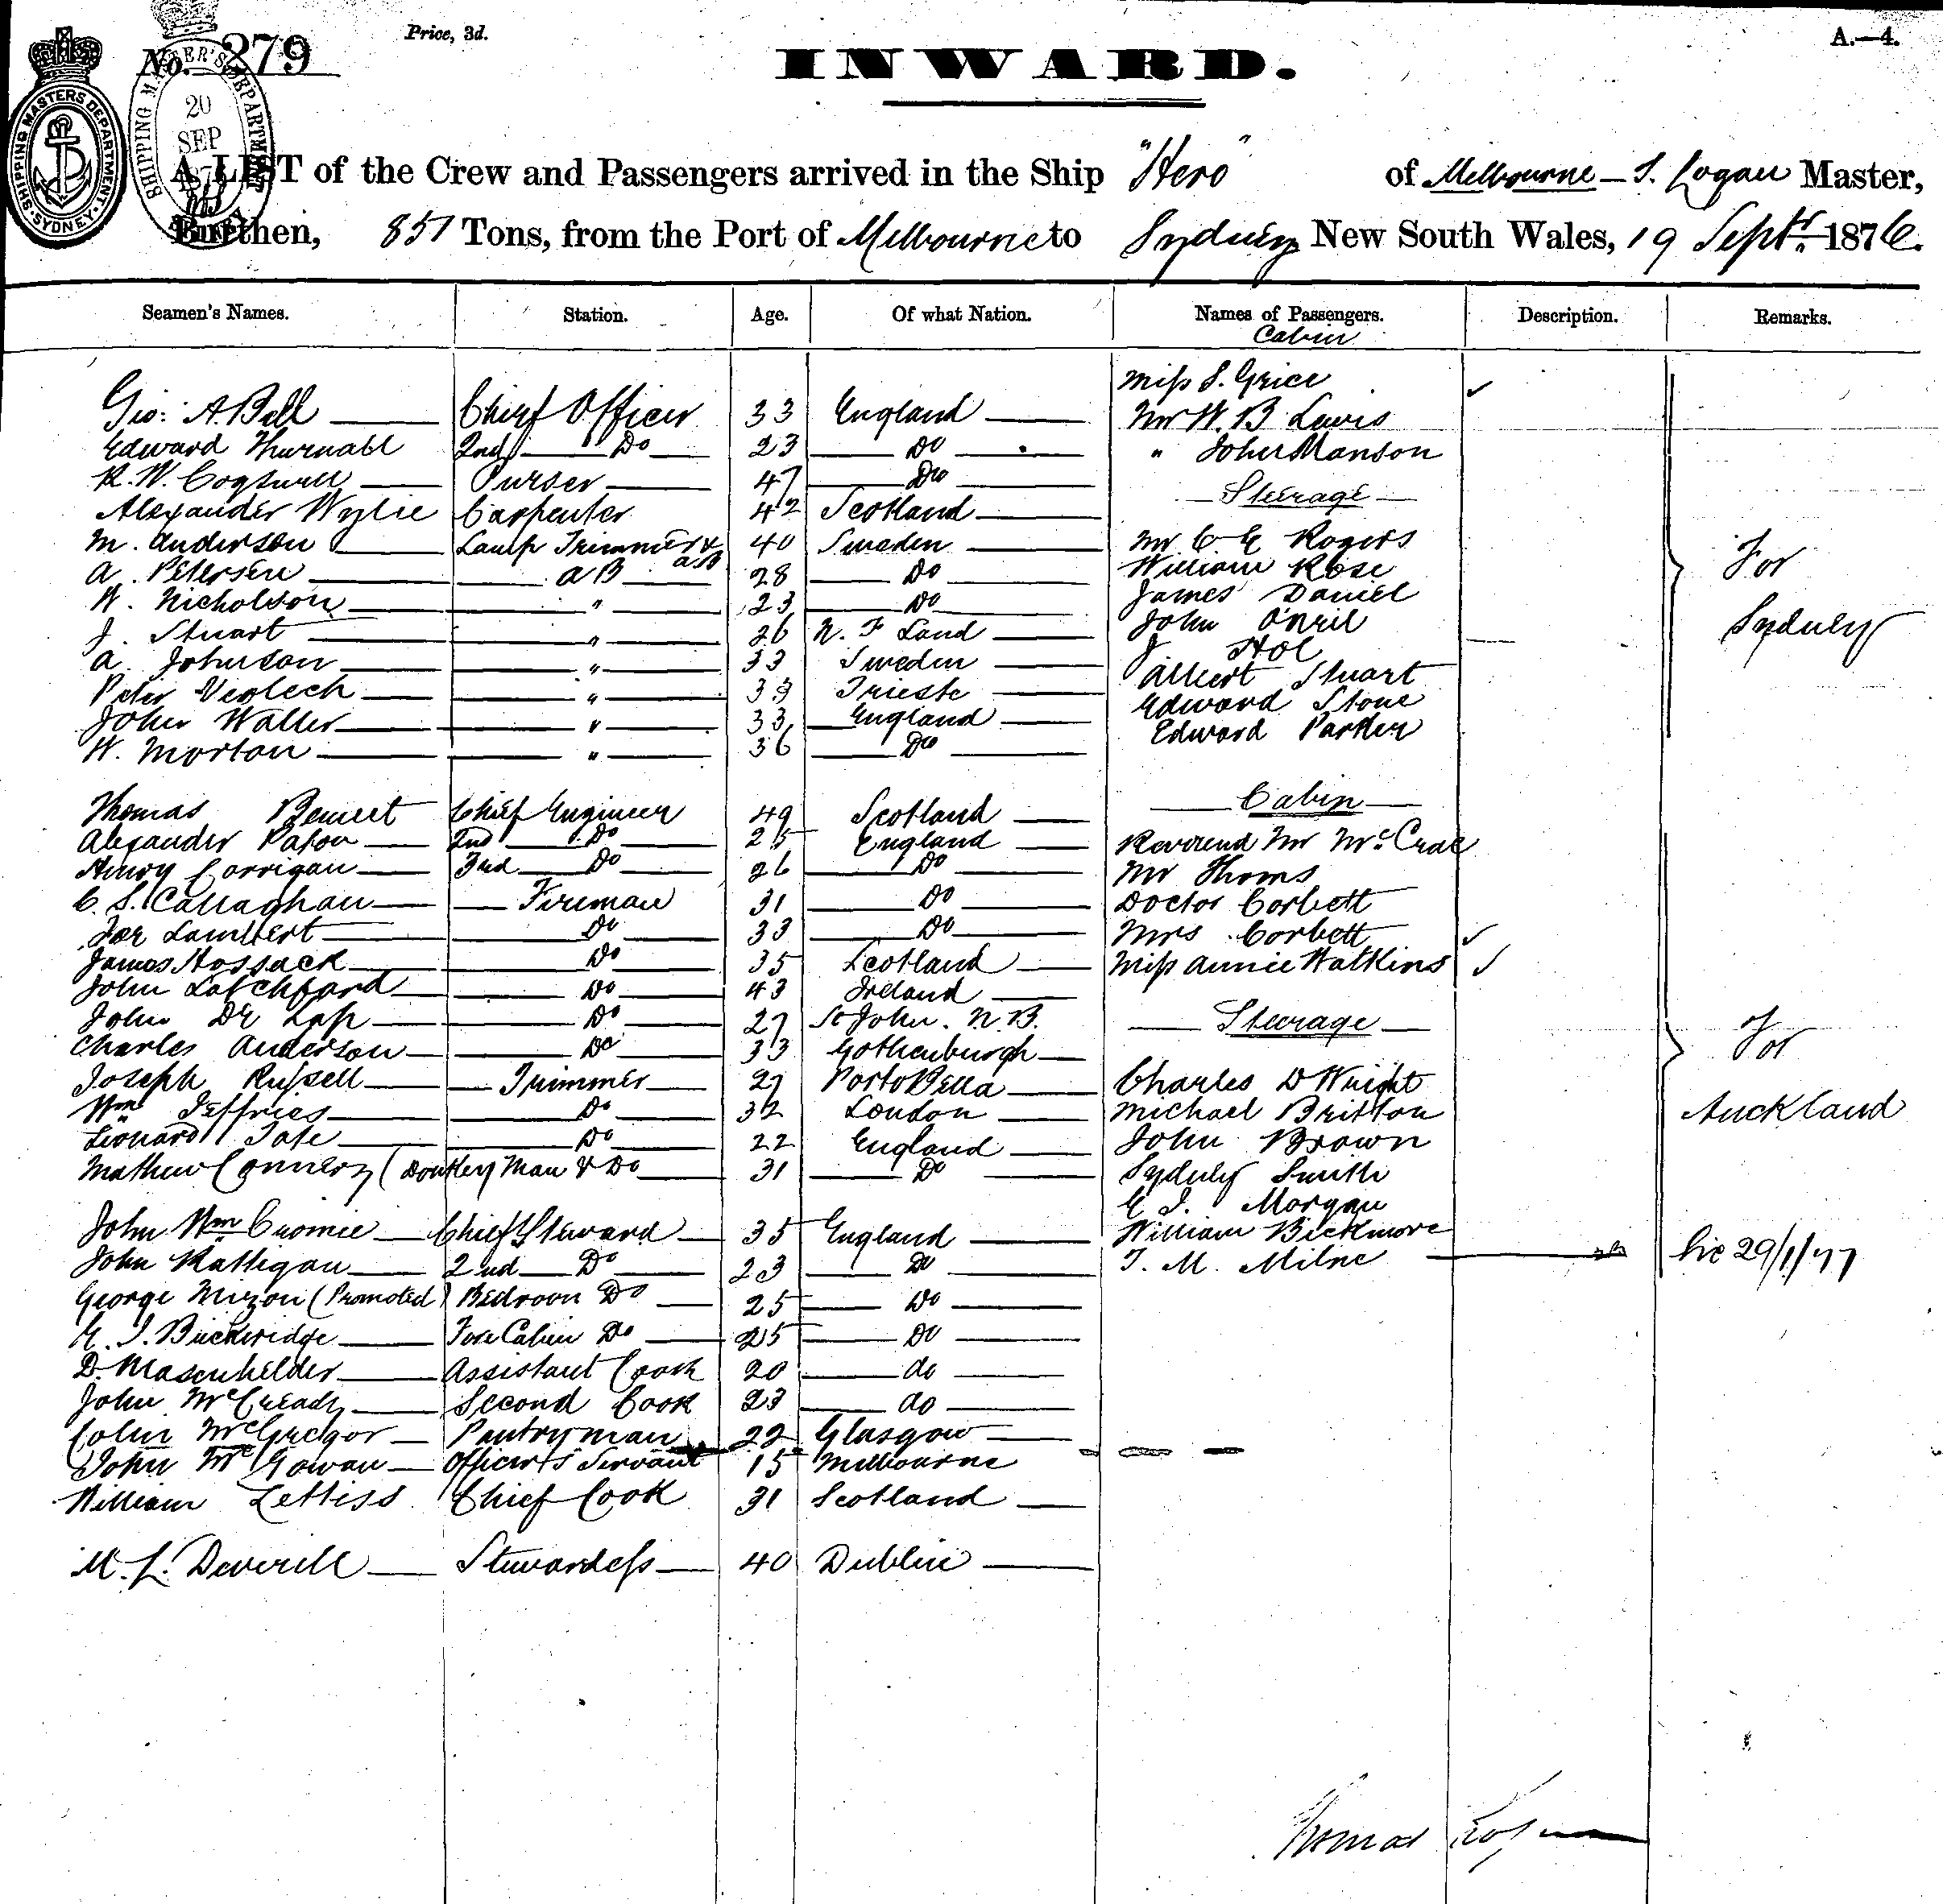 Price, 3d.
A.—4.
No. 279
INWARD.
SHIPPING MASTERS DEPARTMENT SYDNEY
SHIPPING MASTER'S DEPARTMENT
20
SEP
A LIST of the Crew and Passengers arrived in the Ship "Hero" of Melbourne – T. Logan Master,
Burthen, 851 Tons, from the Port of Melbourne to Sydney New South Wales, 19 Septr. 1876.
Seamen's Names. Station. Age. Of what Nation. Names of Passengers. Description. Remarks.
Cabin
Miss S. Grice ✓
Geo: A. Bell Chief Officer 33 England Mr W. B Lewis
Edward Thurnall 2nd Do 23 Do " John Manson
R. W. Cogswell Purser 47 Do Steerage
Alexander Wylie Carpenter 42 Scotland
M. Anderson Lamp Trimmer & AB 40 Sweden Mr C E Rogers For
A. Petersen AB 28 Do William Rose
W. Nicholson " 23 Do James Daniel
J. Stuart " 26 N. F Land John O'Neil Sydney
A. Johnson " 33 Sweden J
Peter " 33 Trieste Albert Stuart
John Waller " 33 England Edward Stone
W. Morton " 36 Do Edward Parker
Thomas Chief Engineer 49 Scotland Cabin
Alexander Paton 2nd Do 25 England Reverend Mr McCrae
Henry Corrigan 3rd Do 26 Do Mr Thoms
C. S. Callaghan Fireman 31 Do Doctor Corbett
Lambert Do 33 Do Mrs Corbett ✓
James Hossack Do 35 Scotland Miss Annie Watkins ✓
John Latchford Do 43 Ireland
John De Do 27 St John. N.B. Steerage For
Charles Anderson Do 33 Gothenburgh
Joseph Russell Trimmer 27 PortoBella Charles D Wright
Wm Jeffries Do 32 London Michael Britton Auckland
Leonard Tate Do 22 England John Brown
Mathew Connery (Donkey Man & Do 31 Do Sydney Smith
Morgan
John Wm Cromie Chief Steward 35 England William Bickmore
John Rattigan 2nd Do 23 Do T. M. Milne 29/1/77
George Mizon (Promoted) Bedroom Do 25 Do
Buckeridge Fore Cabin Do 25 Do
D. Masenhelder Assistant Cook 20 do
John McCready Second Cook 23 do
Colin McGregor Pantryman 22 Glasgow
John McGowan Officers Servant 15 Melbourne
William Lettiss Chief Cook 31 Scotland
M. L. Deverell Stewardess 40 Dublin
Thomas Logan